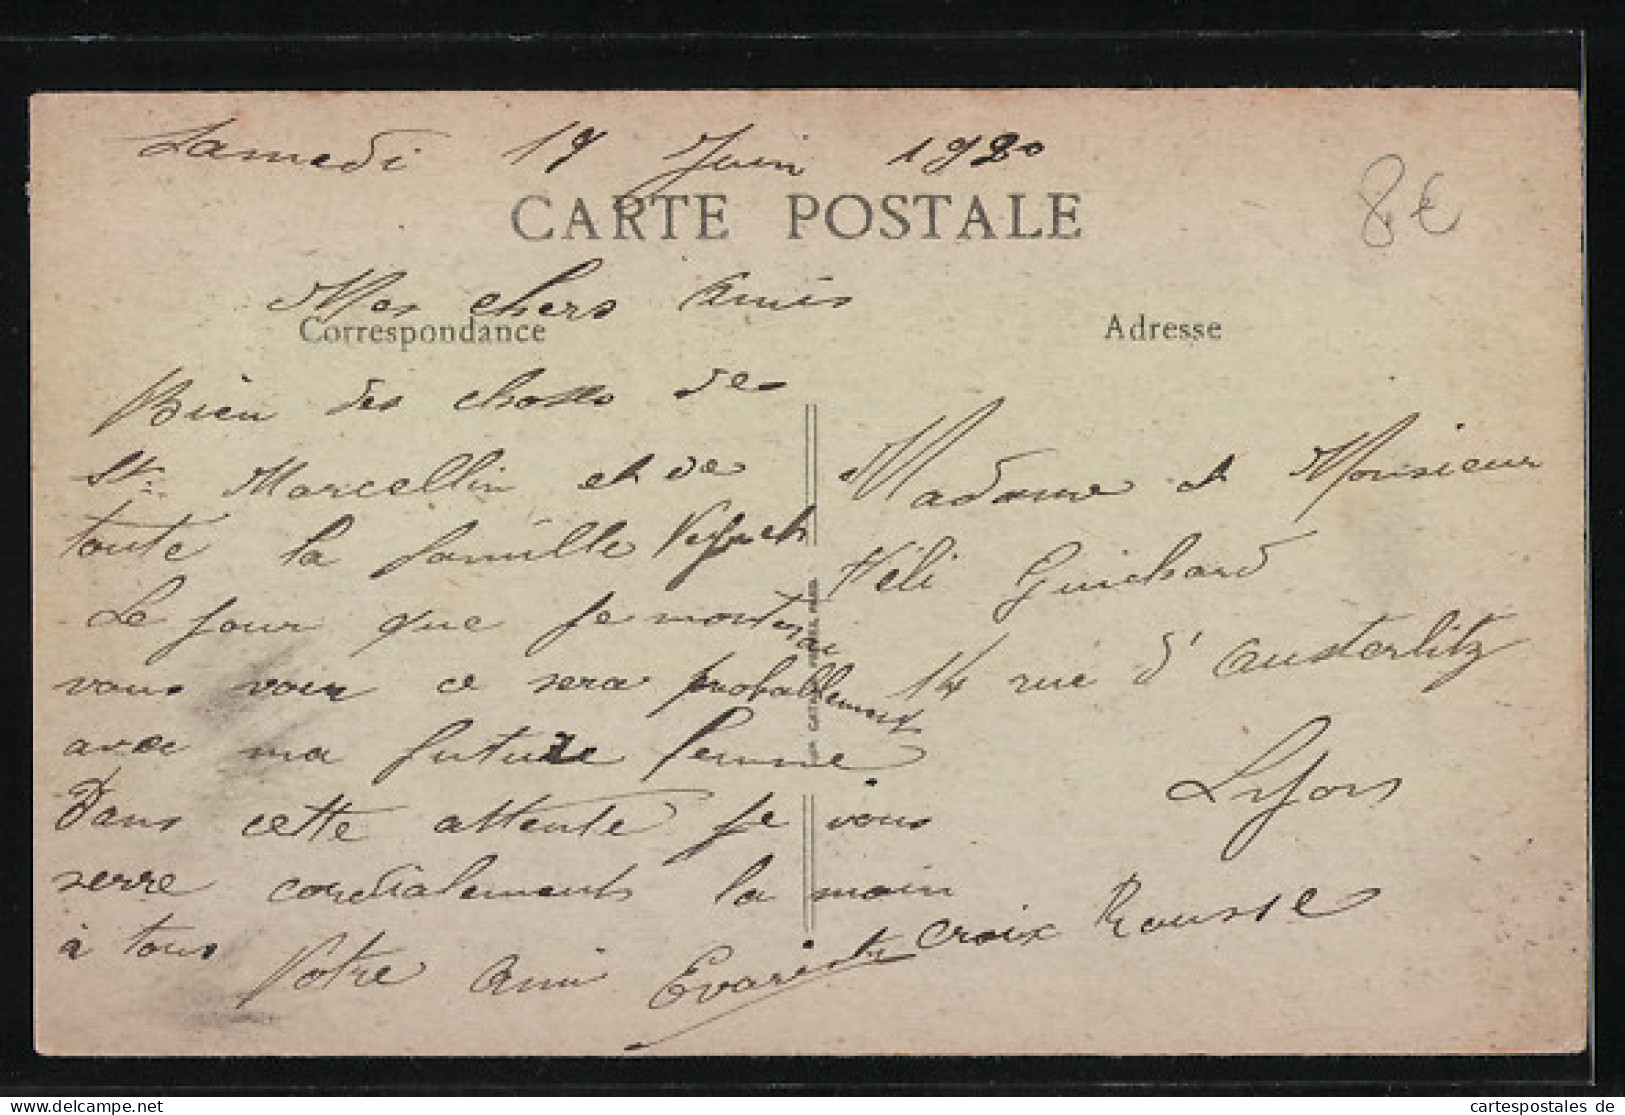 Samedi 19 Juin 1920
CARTE POSTALE
8 €
Mes chers Amis
Correspondance
Bien des choses de
St Marcellin et de
toute la famille
Le jour que je monterai
vous voir ce sera probablement
avec ma future femme
Dans cette attente je vous
serre cordialement la main
à tous Votre Ami Evariste
Adresse
Madame et Monsieur
Héli Guichard
14 rue d'Austerlitz
Lyon
Croix Rousse
delcampe.net
cartespostales de